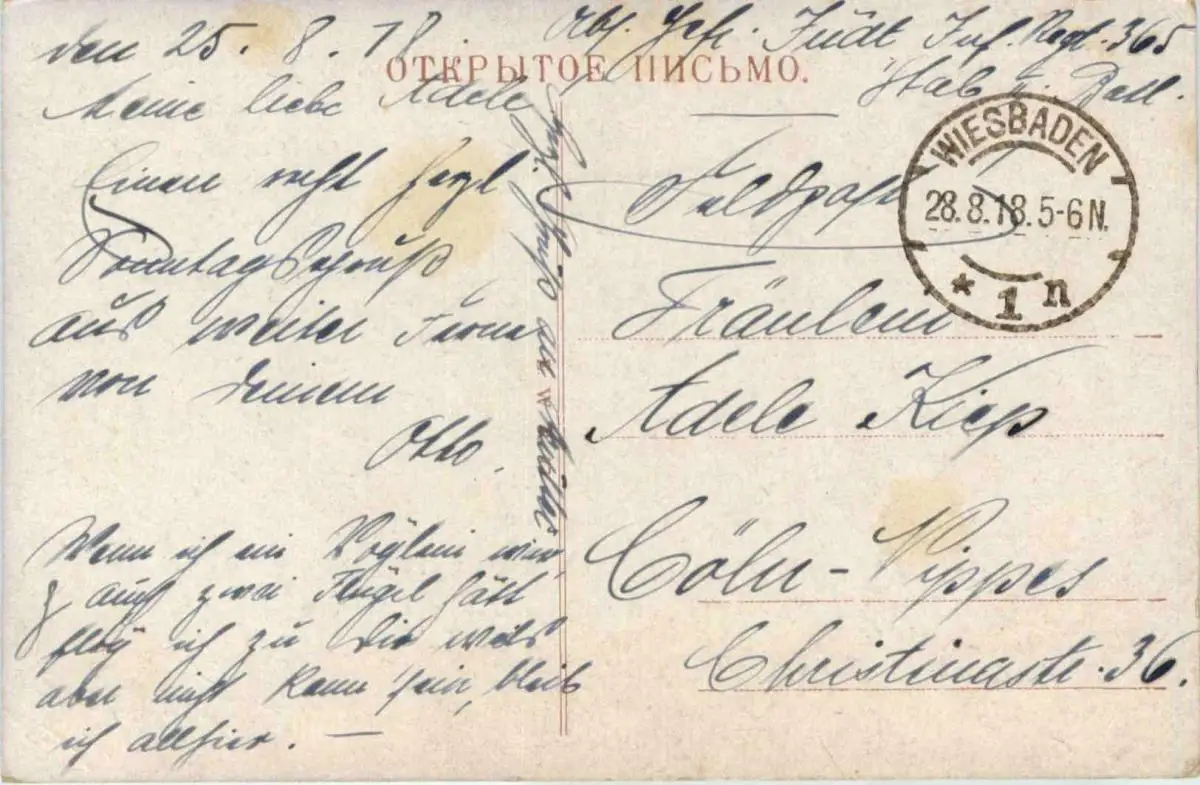 den 25. 8. 18.
Abs. Gefr. Jüdt Inf. Regt. 365
Stab Batl.
ОТКРЫТОЕ ПИСЬМО.
Meine liebe Adele
Einen recht herzl
Sonntagsgruß
aus weiter Ferne
von Deinem
Otto.
Wenn ich ein Vöglein wär,
& auch zwei Flügel hätt
flög ich zu Dir weils
aber nicht kann sein, bleib
ich allhier. —
Herzl. Gruß an
Feldpost
WIESBADEN
28.8.18.5-6N.
* 1 n
Fräulein
Adele Kiep
Cöln-Nippes
Christinastr. 36.